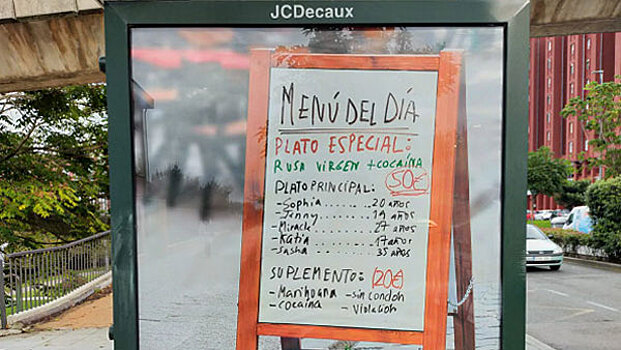 JCDecaux
MENÚ DEL DÍA
PLATO ESPECIAL:
RUSA VIRGEN + COCAÍNA
PLATO PRINCIPAL: 50€
-Sophia....... 20 años
-Jenny........ años
-Miracle....... 27 años
-Katia......... 17 años
-Sasha......... 35 años
SUPLEMENTO: 20€
-Marihuana -sin condón
-cocaína - Violación